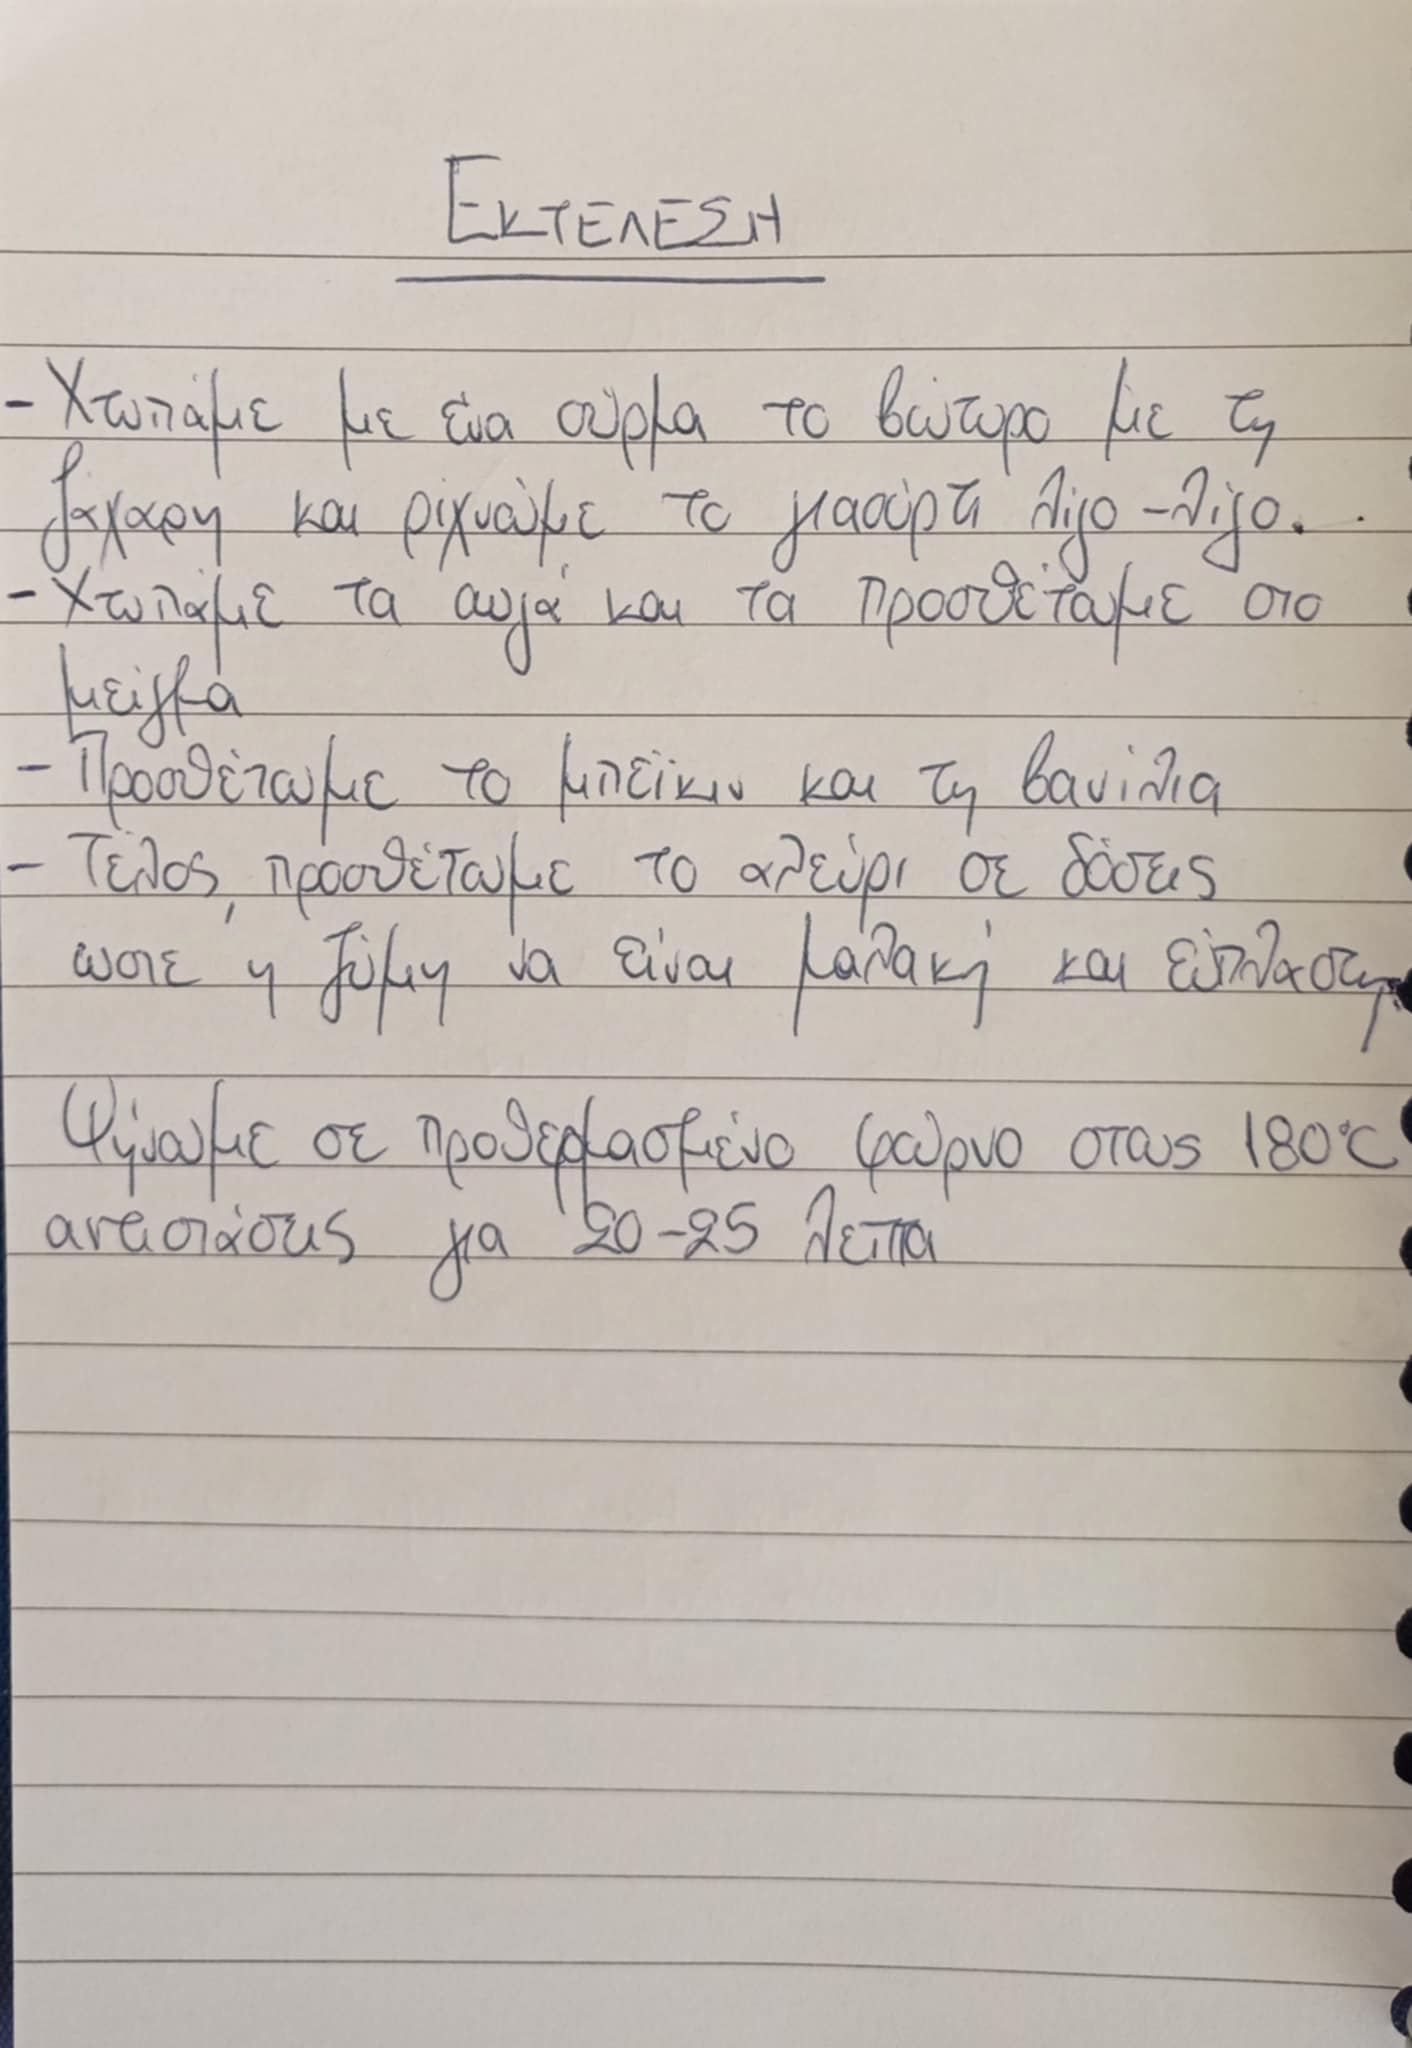 ΕΚΤΕΛΕΣΗ
- Χτυπάμε με ένα σύρμα το βούτυρο με τη
ζάχαρη και ριχνουμε το γιαούρτι λίγο - λίγο.
- Χτυπάμε τα αυγά και τα προσθέτουμε στο
μείγμα
- Προσθέτουμε το μπέϊκιν και τη βανίλια
- Τέλος, προσθέτουμε το αλεύρι σε δόσεις
ωστε η ζύμη να είναι μαλακή και εύπλαστη.
Ψήνουμε σε προθερμασμένο φούρνο στους 180°C
αντιστάσεις για 20-25 λεπτα